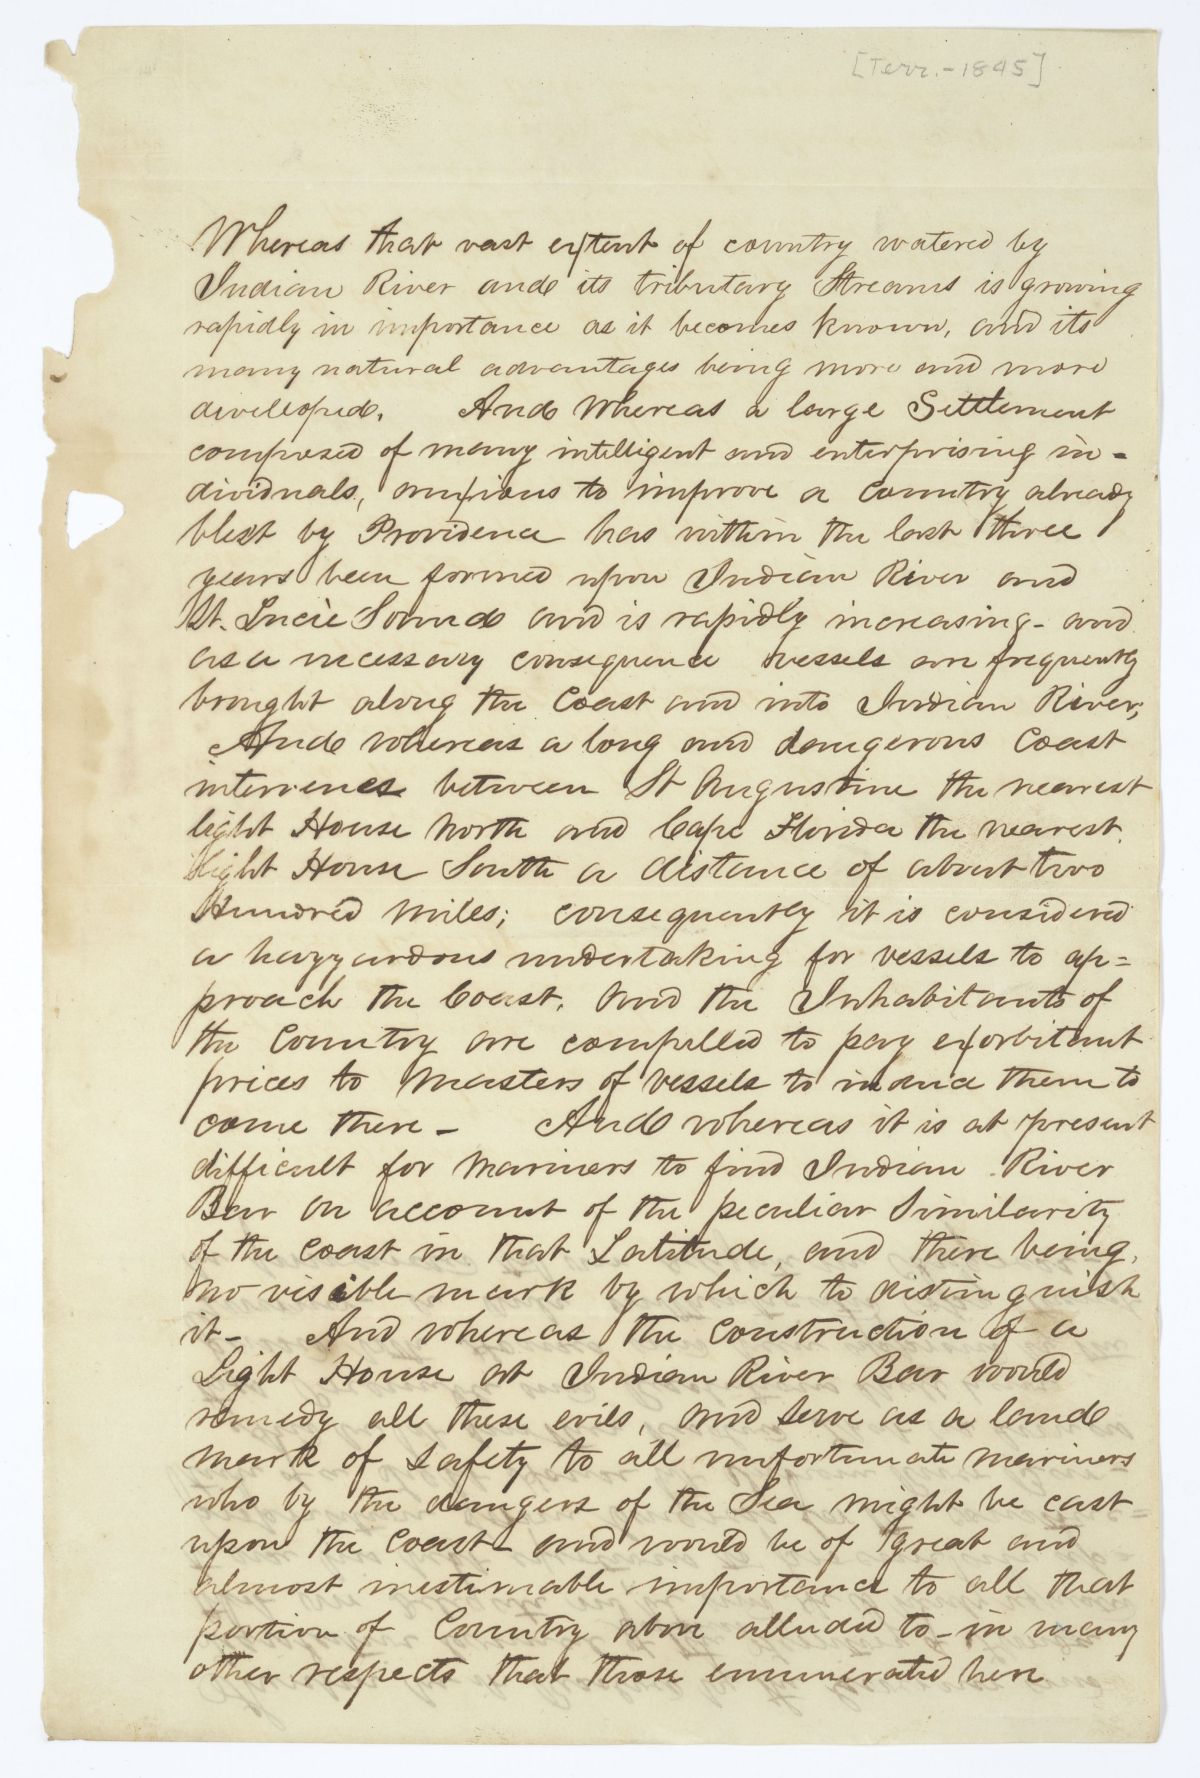 [Terr.-1845]
Whereas that vast extent of country watered by
Indian River and its tributary Streams is growing
rapidly in importance as it becomes known, and its
many natural advantages being more and more
developed. And Whereas a large Settlement
composed of many intelligent and enterprising in-
dividuals, anxious to improve a Country already
blest by Providence has within the last three
years been formed upon Indian River and
St. Lucie Sound and is rapidly increasing - and
as a necessary consequence vessels are frequently
brought along the Coast and into Indian River;
And whereas a long and dangerous Coast
intervenes between St Augustine the nearest
light House North and Cape Florida the nearest
light House South a distance of about two
Hundred Miles; consequently it is considered
a hazzardous undertaking for vessels to ap=
proach the Coast. And the Inhabitants of
the Country are compelled to pay exorbitant
prices to Masters of vessels to induce them to
come there - And whereas it is at present
difficult for Mariners to find Indian River
Bar on account of the peculiar Similarity
of the Coast in that Latitude, and there being
no visible mark by which to distinguish
it - And whereas the Construction of a
Light House at Indian River Bar would
remedy all these evils, and serve as a land
mark of safety to all unfortunate mariners
who by the dangers of the Sea might be cast
upon the Coast - and would be of great and
almost inestimable importance to all that
portion of Country above alluded to - in many
other respects that those enumerated here